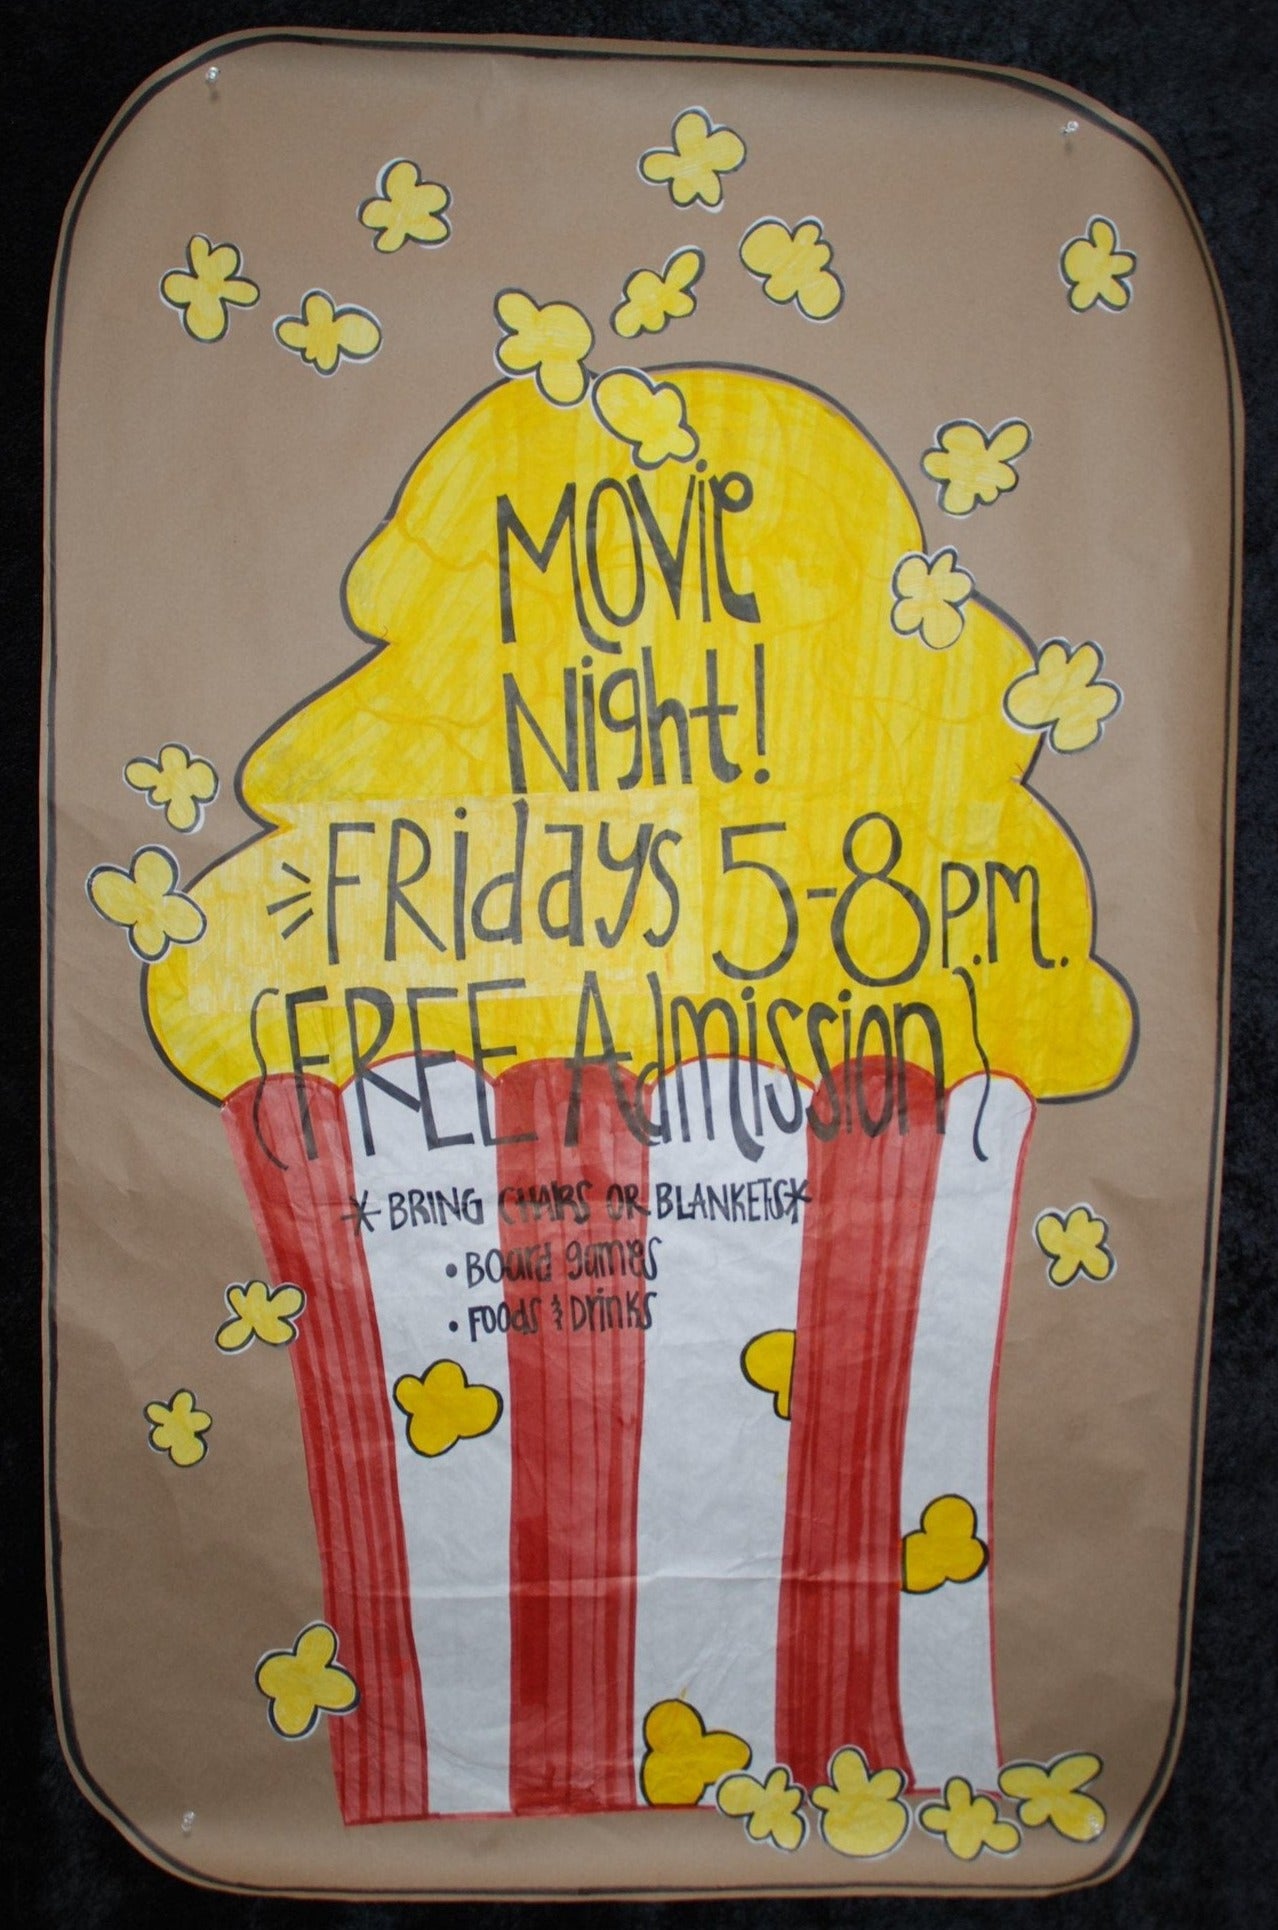 Movie
Night!
FRidays 5-8 P.M.
(FREE Admission)
* BRING CHAIRS OR BLANKETS *
• Board games
• Foods & Drinks